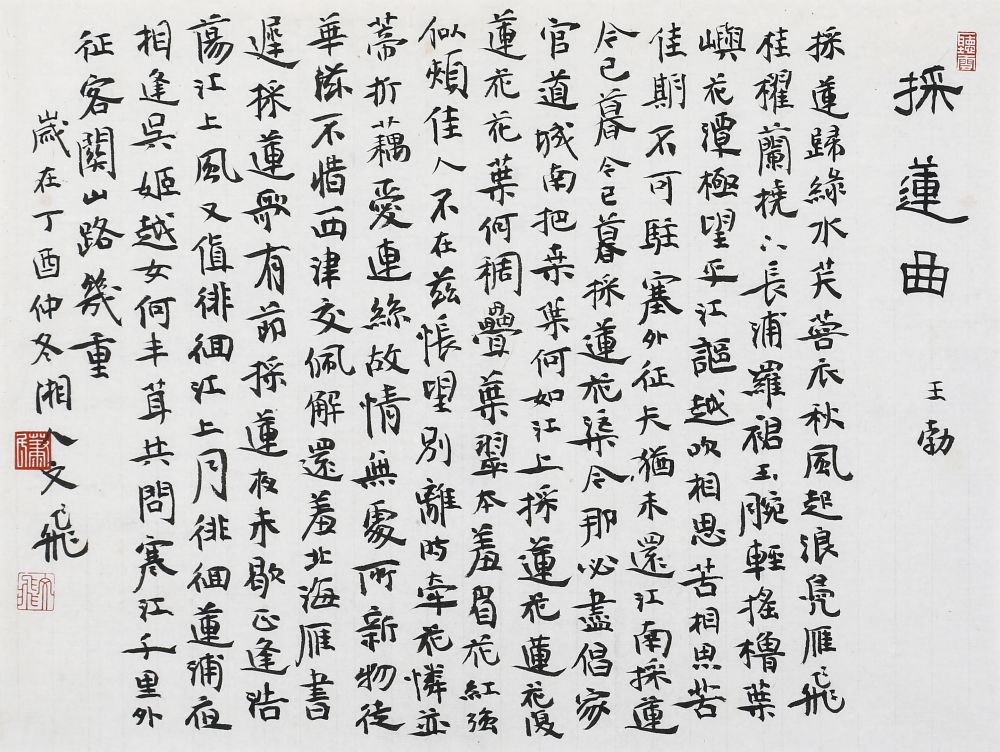 採蓮曲
王勃
採蓮歸綠水芙蓉衣秋風起浪鳧雁飛
桂櫂蘭橈下長浦羅裙玉腕輕搖櫓葉
嶼花潭極望平江謳越吹相思苦相思苦
佳期不可駐塞外征夫猶未還江南採蓮
今已暮今已暮採蓮花渠今那必盡倡家
官道城南把桑葉何如江上採蓮花蓮花復
蓮花花葉何稠疊葉翠本羞眉花紅強
似頰佳人不在茲悵望別離時牽花憐並
蒂折藕愛連絲故情無處所新物徒
華滋不惜西津交佩解還羞北海雁書
遲採蓮歌有節採蓮夜未歇正逢浩
蕩江上風又值徘徊江上月徘徊蓮浦夜
相逢吳姬越女何丰茸共問寒江千里外
征客關山路幾重
歲在丁酉仲冬湘人文飛